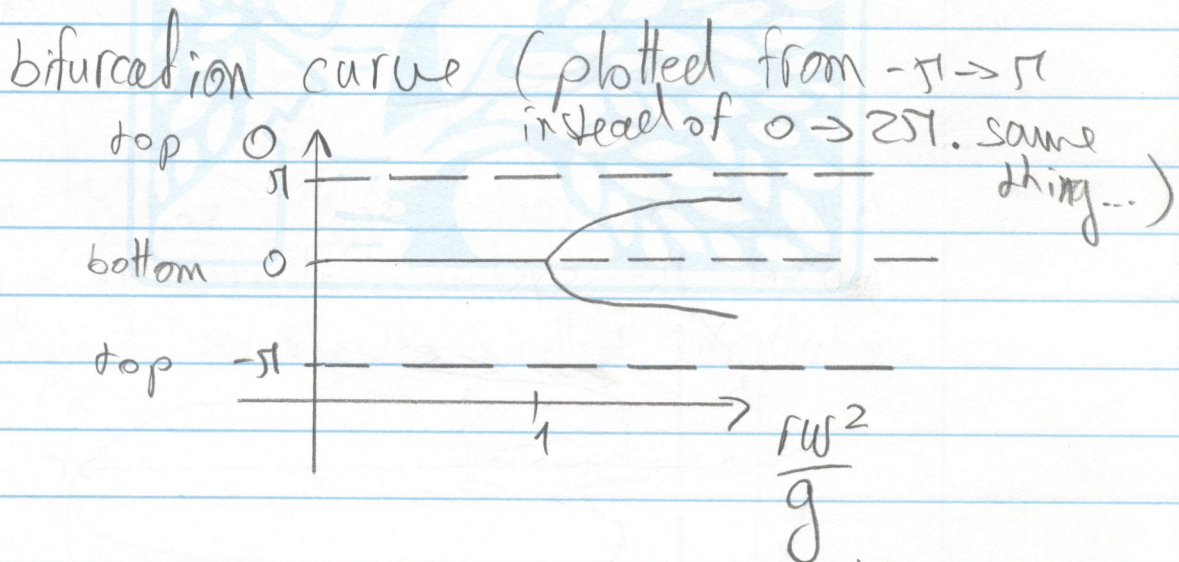 bifurcation curve (plotted from -π→π
instead of 0→2π. same
thing...)
top 0
π
bottom 0
top -π
1
rω²
g